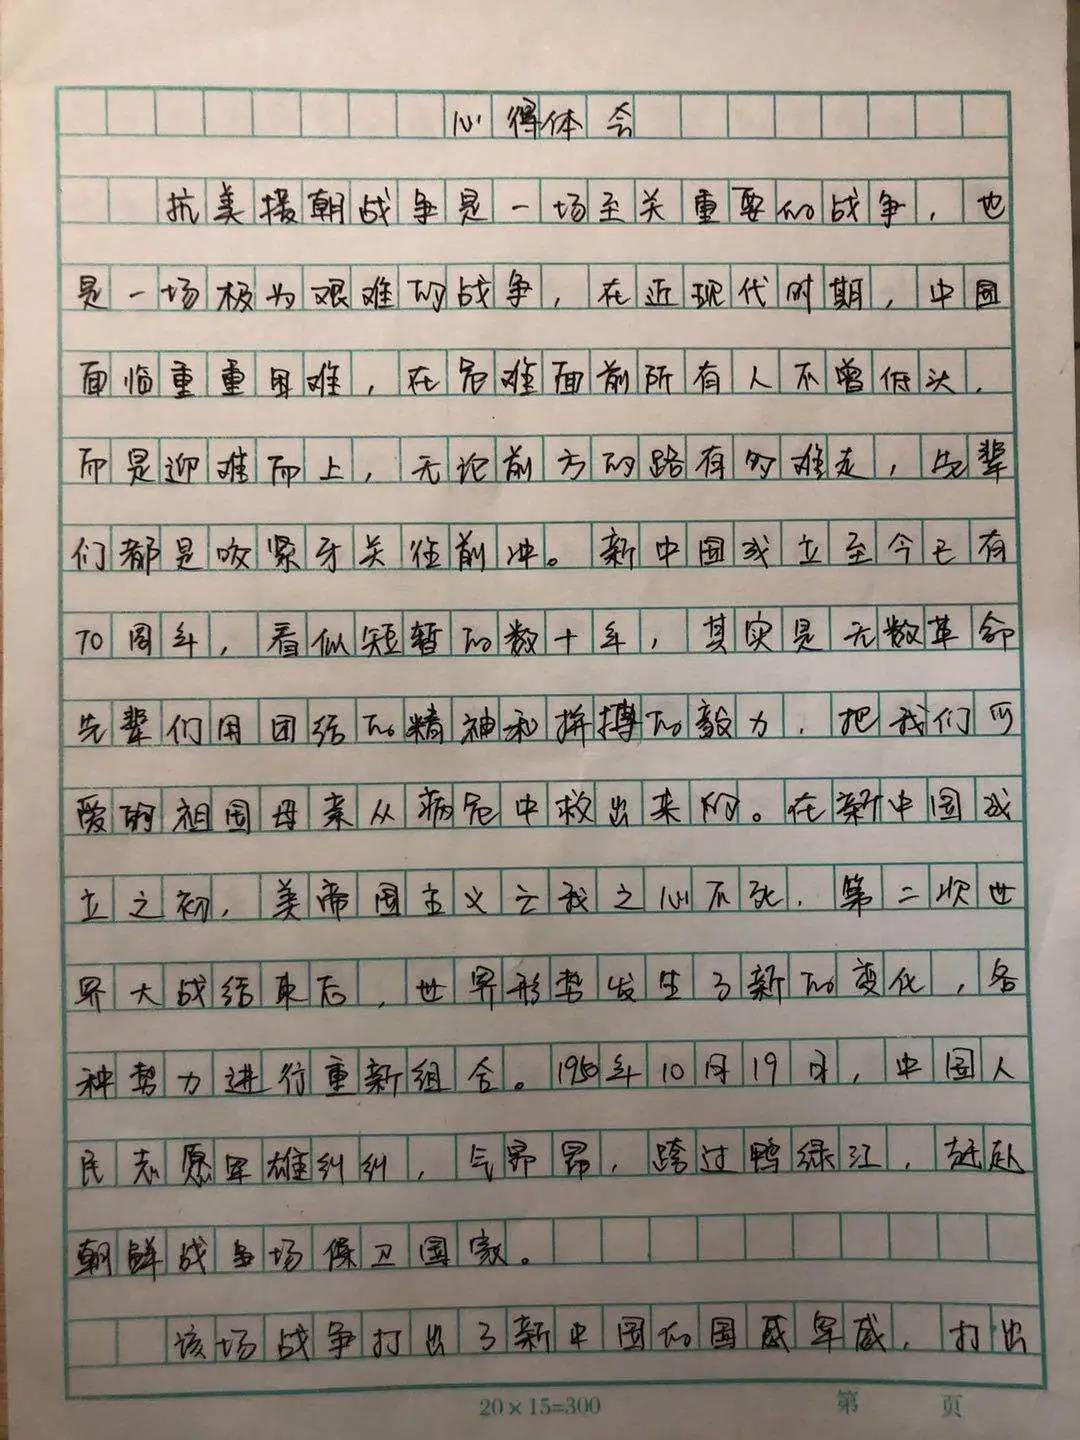 心得体会
抗美援朝战争是一场至关重要的战争，也
是一场极为艰难的战争，在近现代时期，中国
面临重重困难，在危难面前所有人不曾低头，
而是迎难而上，无论前方的路有的难走，先辈
们都是咬紧牙关往前冲。新中国成立至今已有
70周年，看似短暂的数十年，其实是无数革命
先辈们用团结的精神和拼搏的毅力，把我们可
爱的祖国母亲从病危中救出来的。在新中国成
立之初，美帝国主义亡我之心不死，第二次世
界大战结束后，世界形势发生了新的变化，各
种势力进行重新组合。1950年10月19日，中国人
民志愿军雄纠纠，气昂昂，跨过鸭绿江，赶赴
朝鲜战争场保卫国家。
该场战争打出了新中国的国威军威，打出
20×15=300
第 页